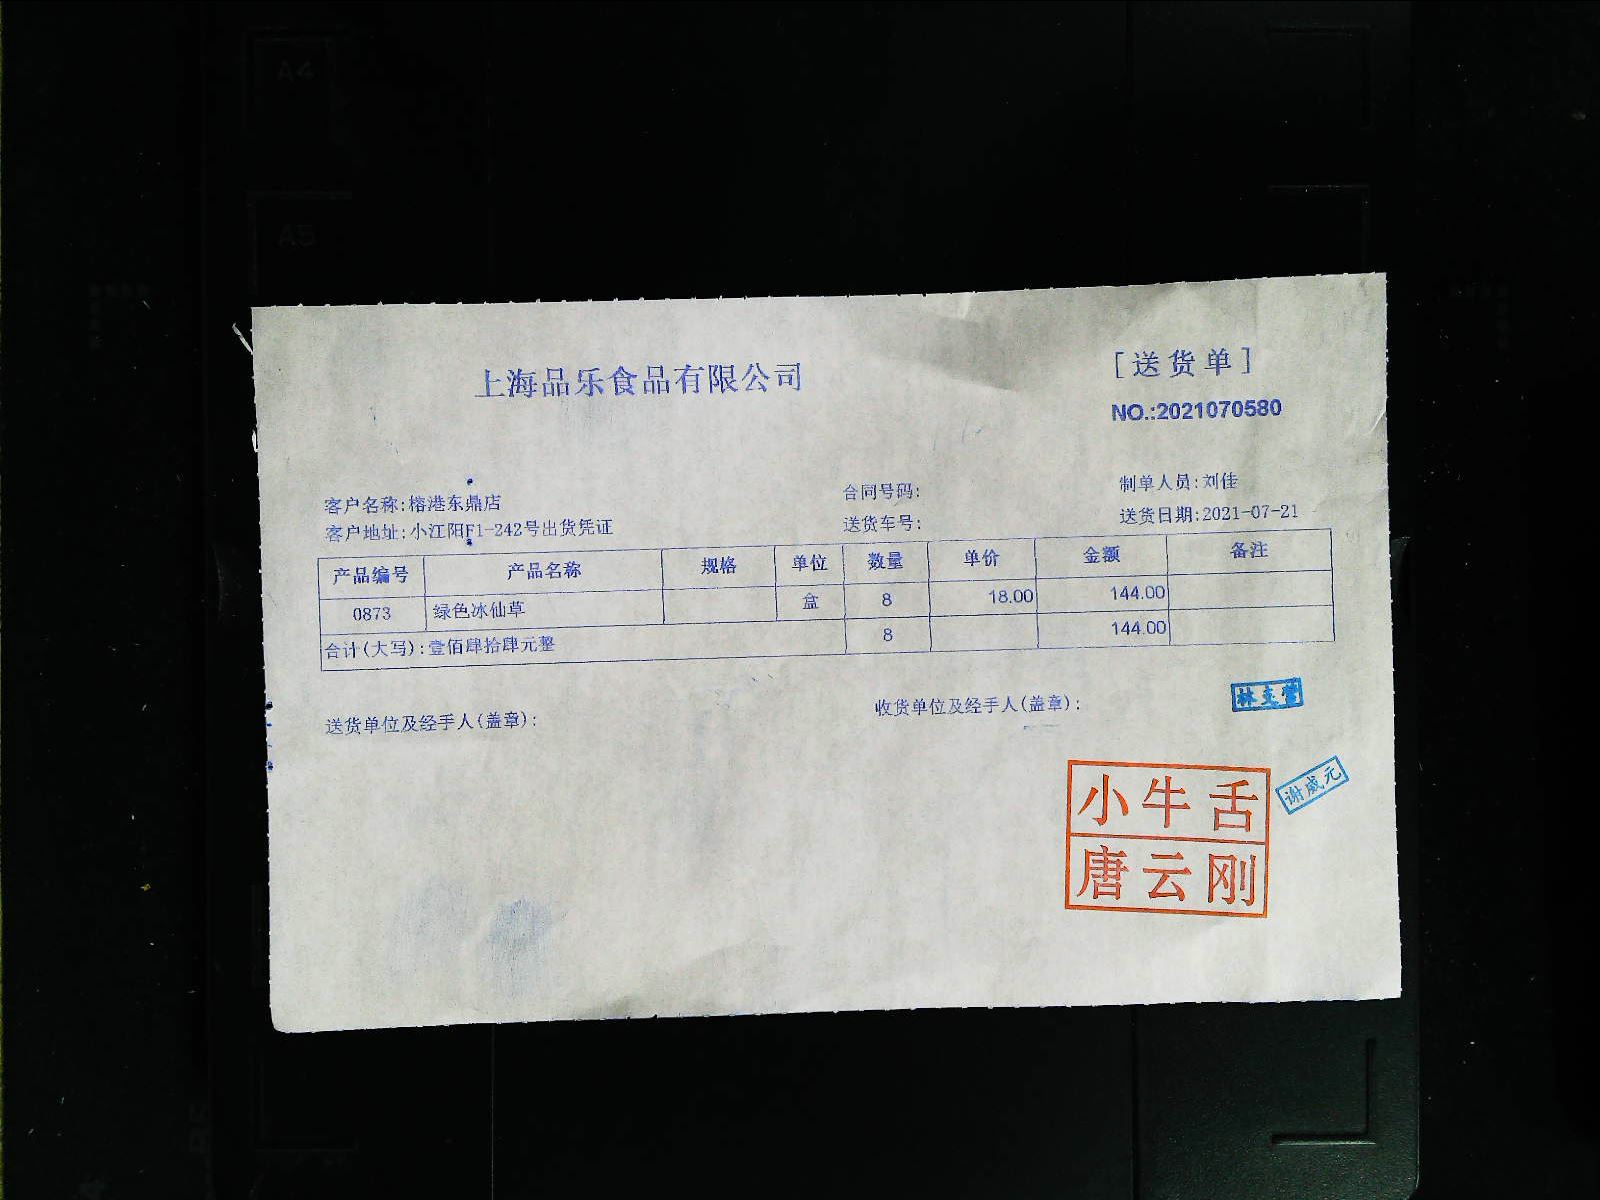 A4
A5
上海品乐食品有限公司
[送货单]
NO.:2021070580
客户名称:榕港东鼎店
合同号码:
制单人员:刘佳
客户地址:小江阳F1-242号出货凭证
送货车号:
送货日期:2021-07-21
产品编号 产品名称 规格 单位 数量 单价 金额 备注
0873 绿色冰仙草 盒 8 18.00 144.00
合计(大写):壹佰肆拾肆元整 8 144.00
送货单位及经手人(盖章):
收货单位及经手人(盖章):
小牛舌
唐云刚
谢威元